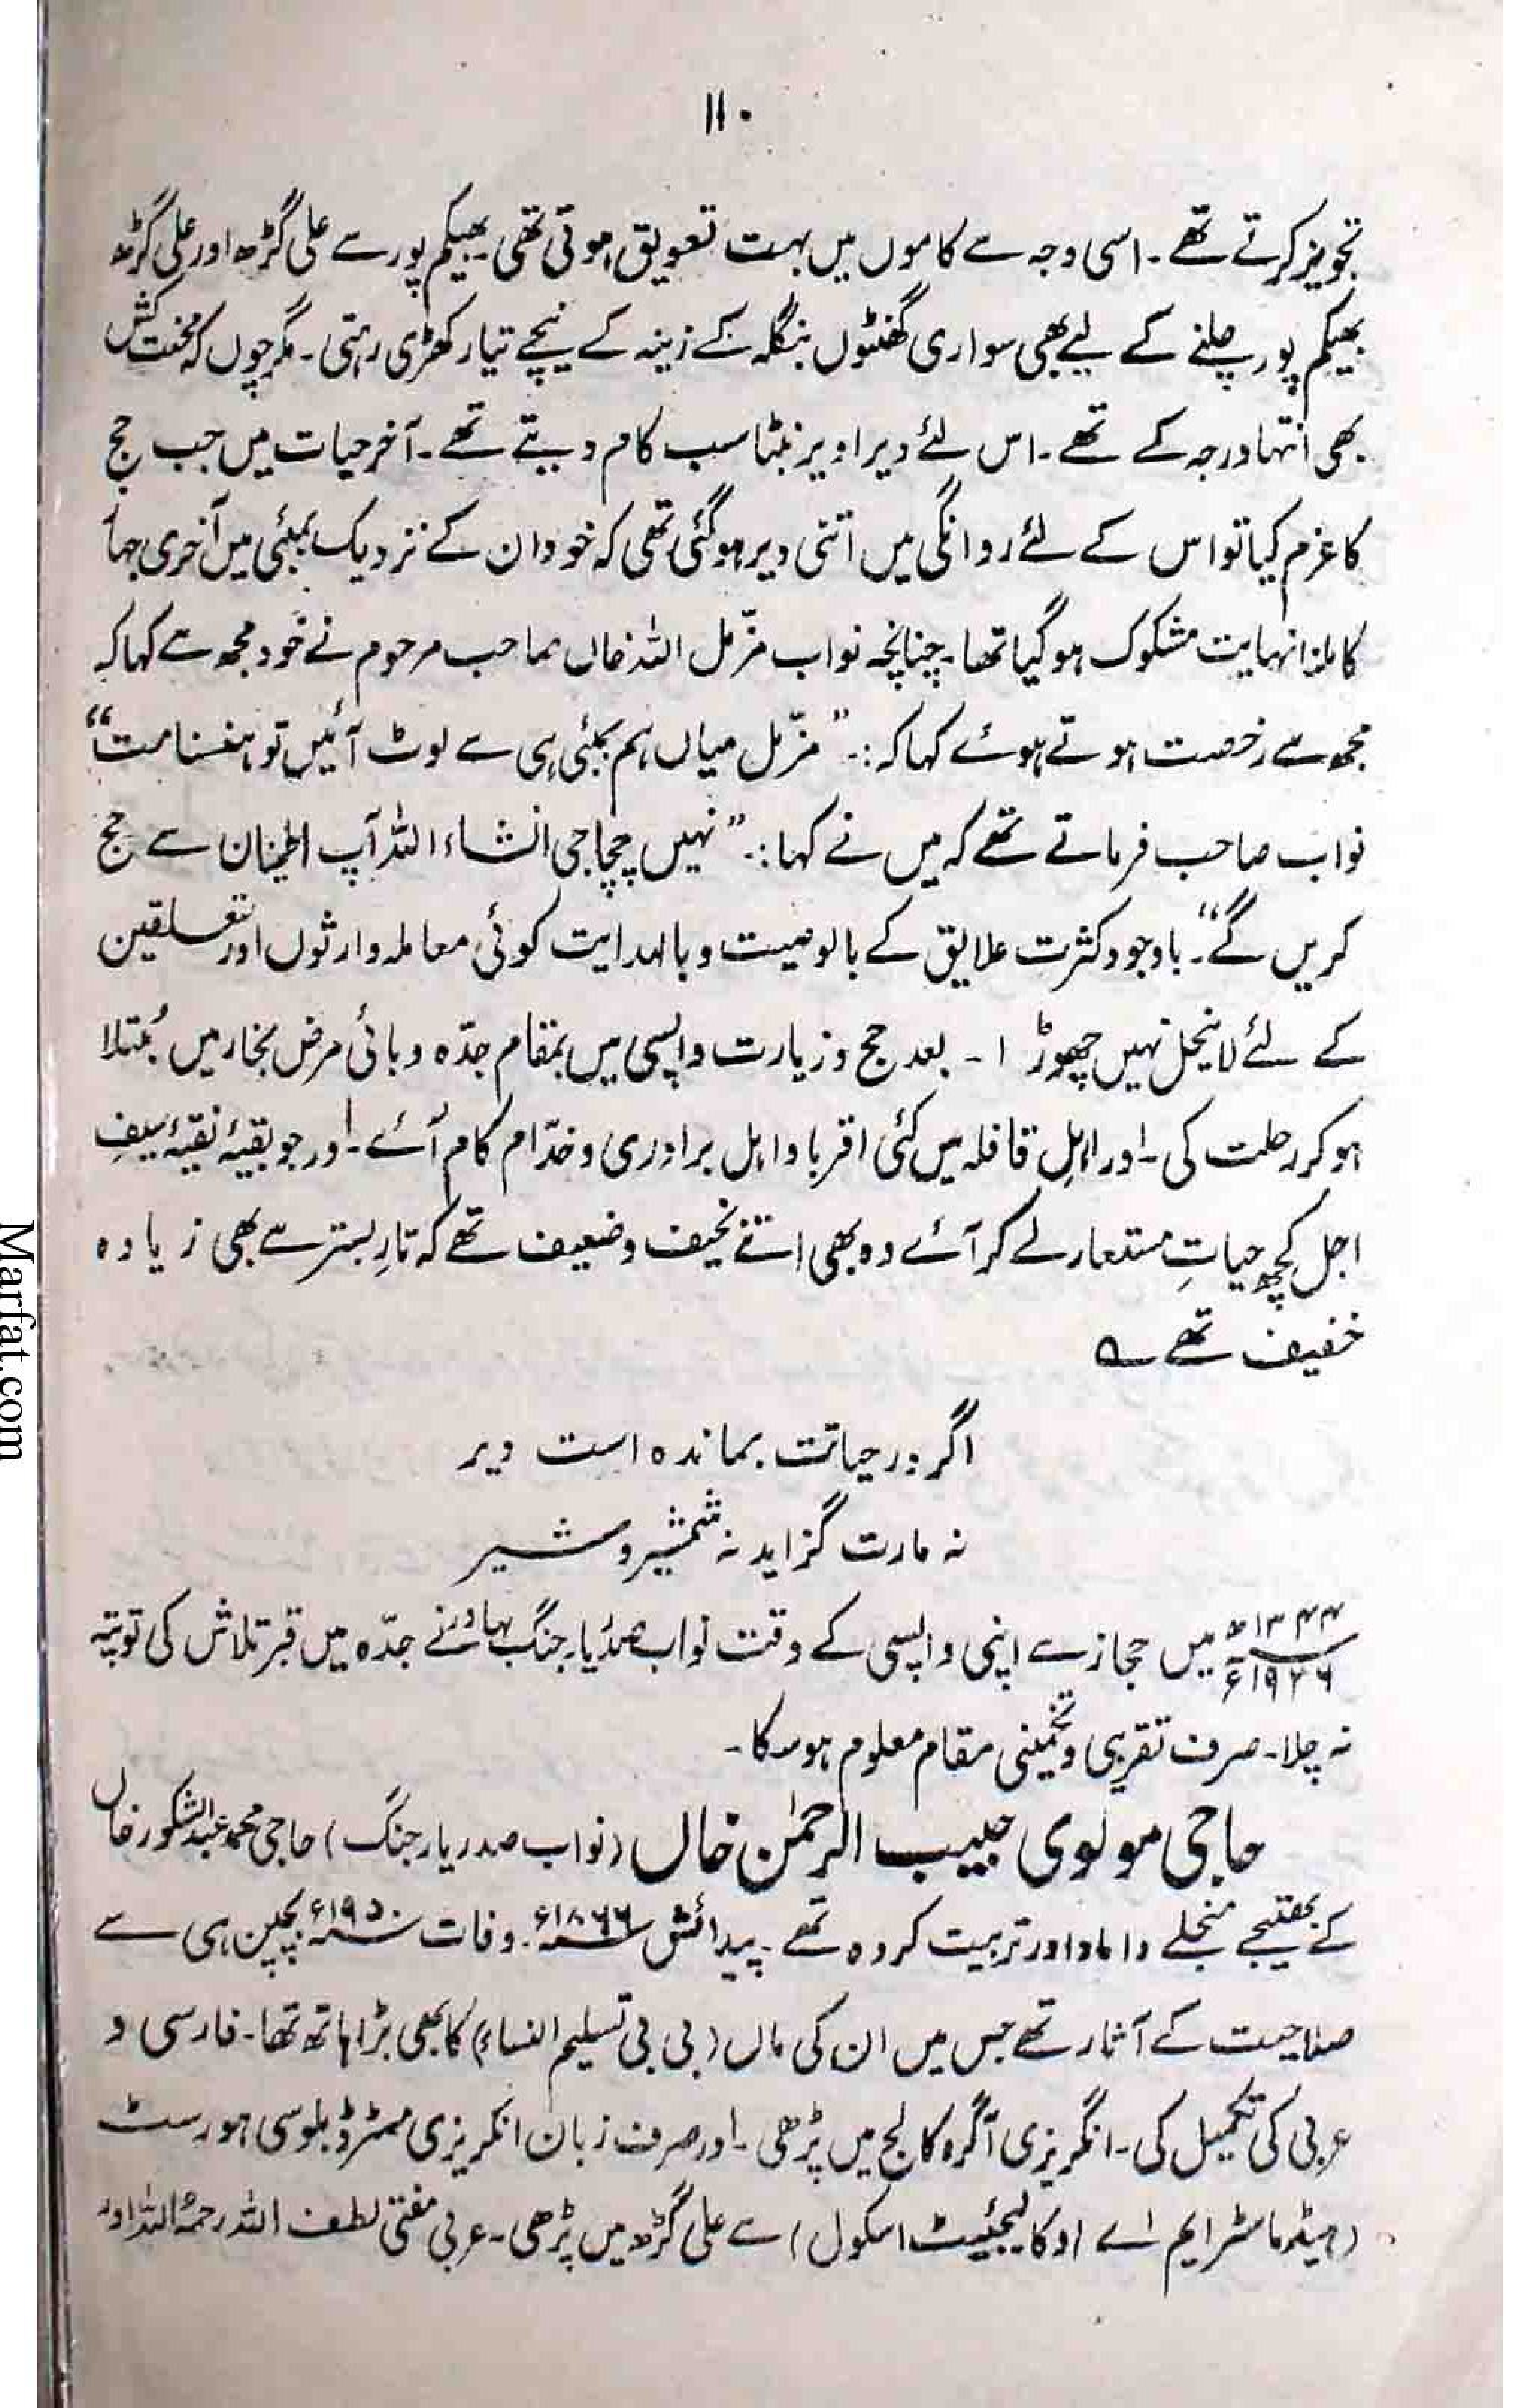 ۱۱۰
تجویز کرتے تھے۔ اسی وجہ سے کاموں میں بہت تعویق ہوتی تھی۔ بھیکم پور سے علی گڑھ اور علی گڑھ
بھیکم پور چلنے کے لیے بھی سواری گھنٹوں بنگلہ کے زینہ کے نیچے تیار کھڑی رہتی۔ مگر چوں کہ محنت کش
بھی انتہا درجہ کے تھے۔ اس لئے دیر اویر نبٹا سب کام دیتے تھے۔ آخر حیات میں جب حج
کا عزم کیا تو اس کے لئے روانگی میں اتنی دیر ہوگئی تھی کہ خود ان کے نزدیک بمبئی میں آخری جہاز
کا ملنا نہایت مشکوک ہو گیا تھا۔ چنانچہ نواب مزّمل اللہ خاں صاحب مرحوم نے خود مجھ سے کہا کہ
مجھ سے رخصت ہوتے ہوئے کہا کہ:۔ ”مزّمل میاں ہم بمبئی ہی سے لوٹ آئیں تو ہنسنا مت“
نواب صاحب فرماتے تھے کہ میں نے کہا:۔ ”نہیں چچا جی انشاء اللہ آپ اطمینان سے حج
کریں گے“۔ باوجود کثرت علایق کے بالوصیت و بالہدایت کوئی معاملہ وارثوں اور متعلقین
کے لئے لاینحل نہیں چھوڑا۔ بعد حج و زیارت واپسی میں بمقام جدّہ وبائی مرض بخار میں مُبتلا
ہوکر رحلت کی۔ اور اہلِ قافلہ میں کئی اقربا و اہل برادری و خدّام کام آئے۔ اور جو بقیۂ نقیۂ سیفِ
اجل کچھ حیاتِ مستعار لے کر آئے وہ بھی اتنے نحیف و ضعیف تھے کہ تارِ بستر سے بھی زیادہ
خفیف تھے ؎
اگر در حیاتت بماندہ است دیر
نہ مارت گزاید نہ شمشیر و شیر
۱۳۴۴ھ ۱۹۲۶ء میں حجاز سے اپنی واپسی کے وقت نواب صدر یار جنگ بہادر نے جدّہ میں قبر تلاش کی تو پتہ
نہ چلا۔ صرف تقریبی و تخمینی مقام معلوم ہو سکا۔
حاجی مولوی حبیب الرحمٰن خاں (نواب صدر یار جنگ) حاجی محمد عبدالشکور خاں
کے بھتیجے منجلے داماد اور تربیت کردہ تھے۔ پیدائش ۱۸۶۶ء۔ وفات ۱۹۵۰ء بچپن ہی سے
صلاحیت کے آثار تھے جس میں ان کی ماں (بی بی تسلیم النساء) کا بھی بڑا ہاتھ تھا۔ فارسی و
عربی کی تکمیل کی۔ انگریزی آگرہ کالج میں پڑھی۔ اور صرف زبان انگریزی مسٹر ڈبلو سی ہورسٹ
(ہیڈ ماسٹر ایم اے او کالیجئیٹ اسکول) سے علی گڑھ میں پڑھی۔ عربی مفتی لطف اللہ رحمۃ اللہ اور
Marfat.com